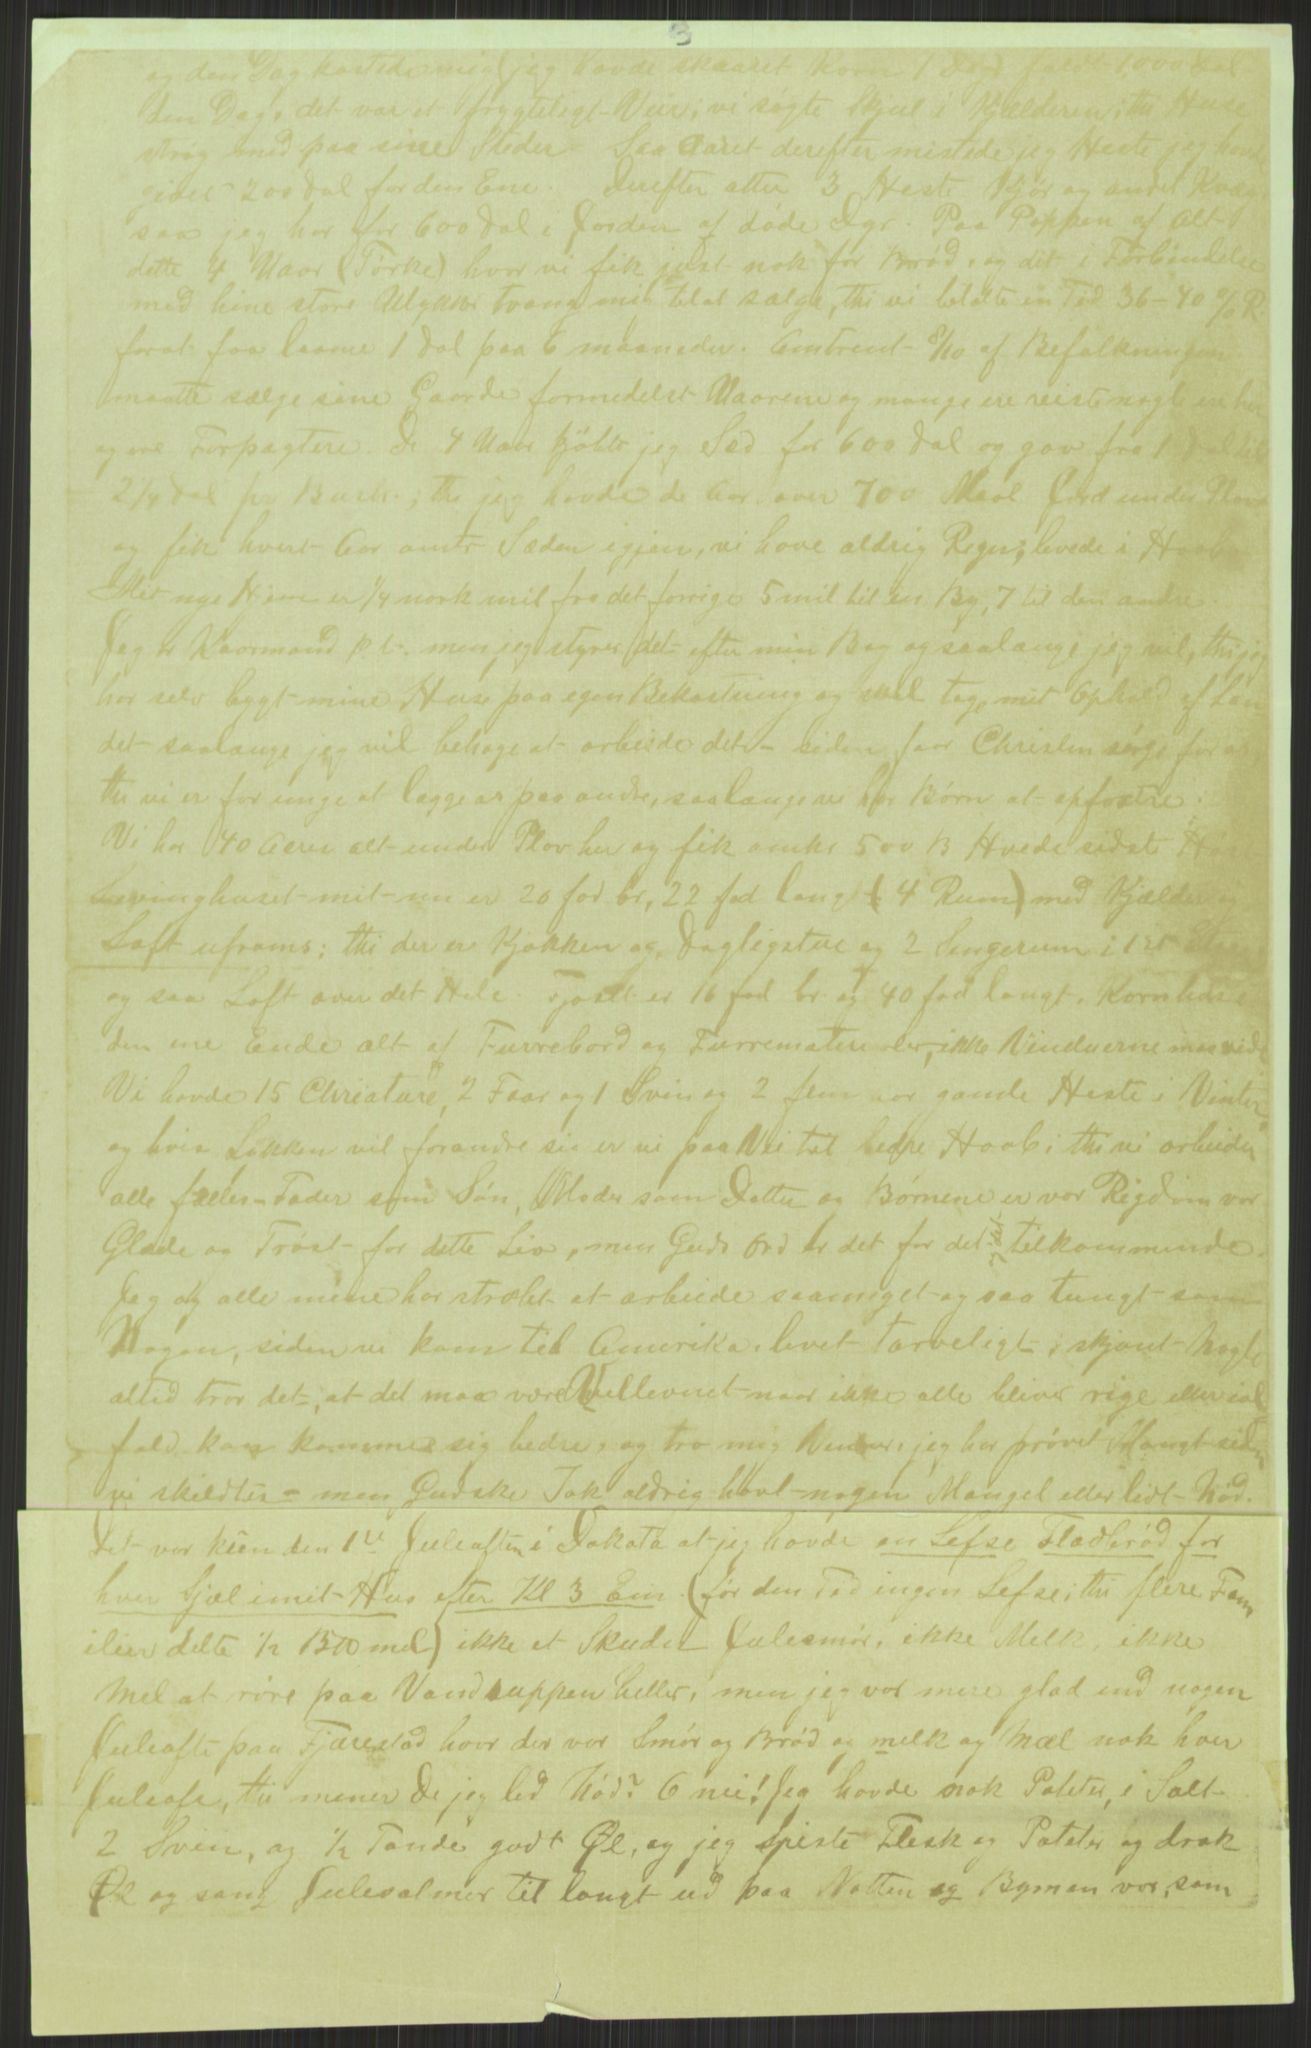 3
og den Dag kostede mig (jeg havde skaaret Korn 1 Dag) fuldt 1,000 Dal
den Dag, det var et frygteligt Veir, vi søgte Skjul i Kjælderen, thi Huse
strøg med paa sine Steder – Saa Aaret derefter mistede jeg Heste jeg havde
givet 200 Dal for den Ene. Derefter atter 3 Heste Kjør og andet Kvæg
saa jeg har for 600 Dal i Jorden af døde Dyr. Paa Toppen af Alt
dette 4 Uaar (Tørke) hvor vi fik just nok for Brød, og det i Forbindelse
med hine store Ulykker tvang mig til at sælge, thi vi betalte en Tid 36–40 % R.
forat faa laane 1 Dal paa 6 maaneder. Omtrent 8/10 af Befolkningen
maatte sælge sine Gaarde formedelst Uaarene og mange ere reist nogle ere her
og ere Forpagtere. De 4 Uaar kjøbte jeg Sæd for 600 Dal og gav fra 1 Dal til
2 1/4 Dal pr Bush.; thi jeg havde de Aar over 700 Maal Jord under Plov
og fik hvert Aar omtr Sæden igjen, vi have aldrig Regn, levede i Haab
Mit nye Hjem er 1/4 norsk mil fra det forrige 5 mil til en By, 7 til den andre
Jeg er Kaarmand p. t. men jeg styrer det efter min Bog og saalange jeg vil, thi jeg
har selv bygt mine Huse paa egen Bekostning og skal tage mit Ophold af Lan-
det saalange jeg vil behage at arbeide det – siden faar Christen sørge for os
thi vi er for unge at lægge os paa andre, saalange vi har Børn at opfostre.
Vi har 40 Acres alt under Plov her og fik omkr 500 B Hvede sidste Høst
huset mit nu er 20 fod br, 22 fod langt (4 Rum) med Kjælder og
Loft uframs: thi der er Kjøkken og Dagligstue og 2 Sengerum i 1st
og saa Loft over det Hele. Fjøset er 16 fod br og 40 fod langt. Kornhus i
den ene Ende alt af Furrebord og Furrematerialer, ikke Vinduerne
Vi havde 15 Chreature, 2 Faar og 1 Svin og 2 fem aar gamle Heste i Vinter
og hvis Lykken vil forandre sig er vi paa Vei til bedre Haab; thi vi arbeider
alle fælles – Fader som Søn, Moder som Datter og Børnene er vor Rigdom vor
Glæde og Trøst for dette Liv, men Guds Ord er det for det tilkommende.
Jeg og alle mine har strævet at arbeide saameget og saa tungt som
Nogen, siden vi kom til Amerika, levet tarveligt, skjønt Nogle
altid tror det, at det maa være Vellevnet naar ikke alle bliver rige eller ial
fald kan komme sig bedre, og tro mig Venner, jeg har prøvet Mangt siden
vi skildtes – men Gudske Tak aldrig havt nogen Mangel eller lidt Nød.
Det var kun den 1te Juleaften i Dakota at jeg havde en Lefse Fladbrød for
hver Sjæl i mit Hus efter Kl 3 Em. (før den Tid ingen Lefse; thi flere Fam
ilier delte 1/2 B mel) ikke et Skudu Julesmør, ikke Melk, ikke
Mel at røre paa Vandsuppen heller, men jeg var mere glad end nogen
Juleafte paa Fjærestad hvor der var Smør og Brød og melk og Mæl nok hver
Juleaft, thi mener De jeg led Nød? O nei! Jeg havde nok Poteter, i Salt
2 Svin, og 1/2 Tønde godt Øl, og jeg spiste Flesk og Poteter og drak
Øl og sang Julesalmer til langt ud paa Natten og Bygman var, som